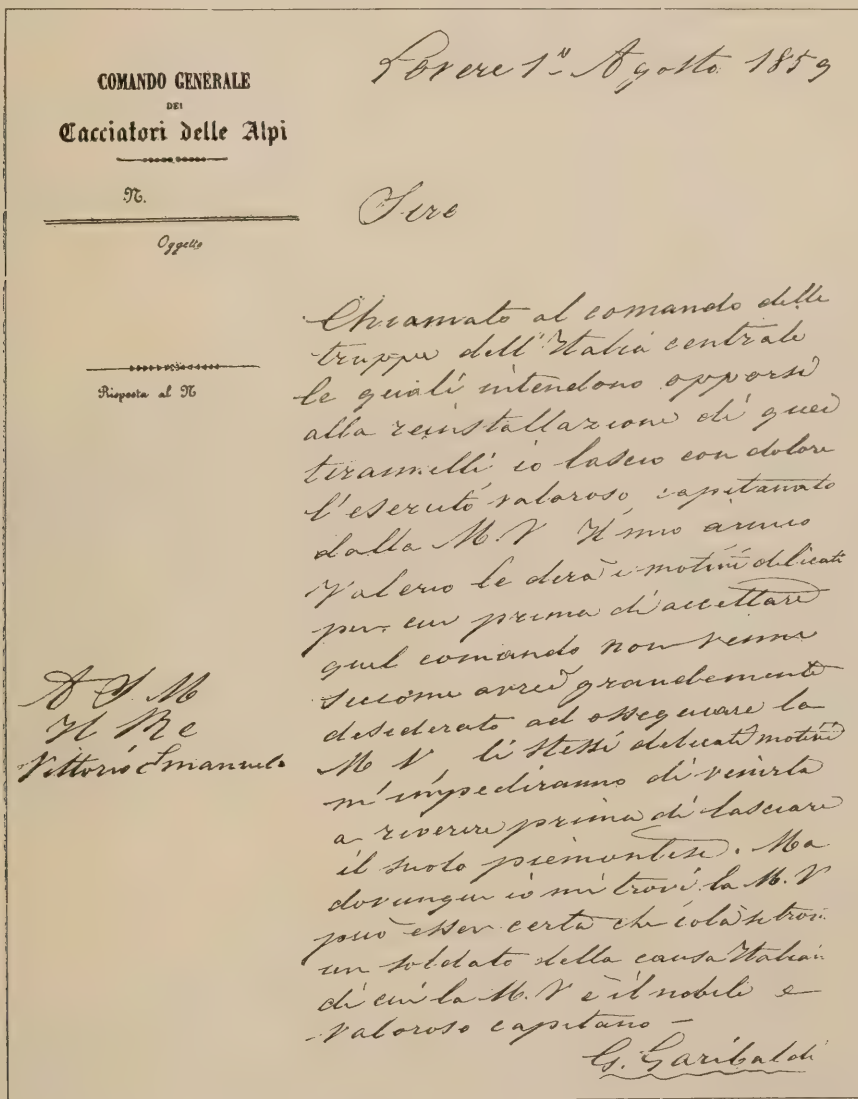 COMANDO GENERALE
DEI
Cacciatori delle Alpi
N.
Oggetto
Risposta al N
Lovere 1º Agosto 1859
Sire
Chiamato al comando delle
truppe dell'Italia centrale
le quali intendono opporsi
alla reinstallazione di quei
tirannelli io lascio con dolore
l'esercito valoroso capitanato
dalla M. V Il mio amico
Valerio le dirà i motivi delicati
per cui prima di accettare
quel comando non venni
siccome avrei grandemente
desiderato ad ossequiare la
M V li stessi delicati motivi
m'impediranno di venirla
a riverire prima di lasciare
il suolo piemontese. Ma
dovunque io mi trovi la M. V
può esser certa che colà si trova
un soldato della causa Italiana
di cui la M. V è il nobile e
valoroso capitano –
G. Garibaldi
A S. M
Il Re
Vittorio Emanuele